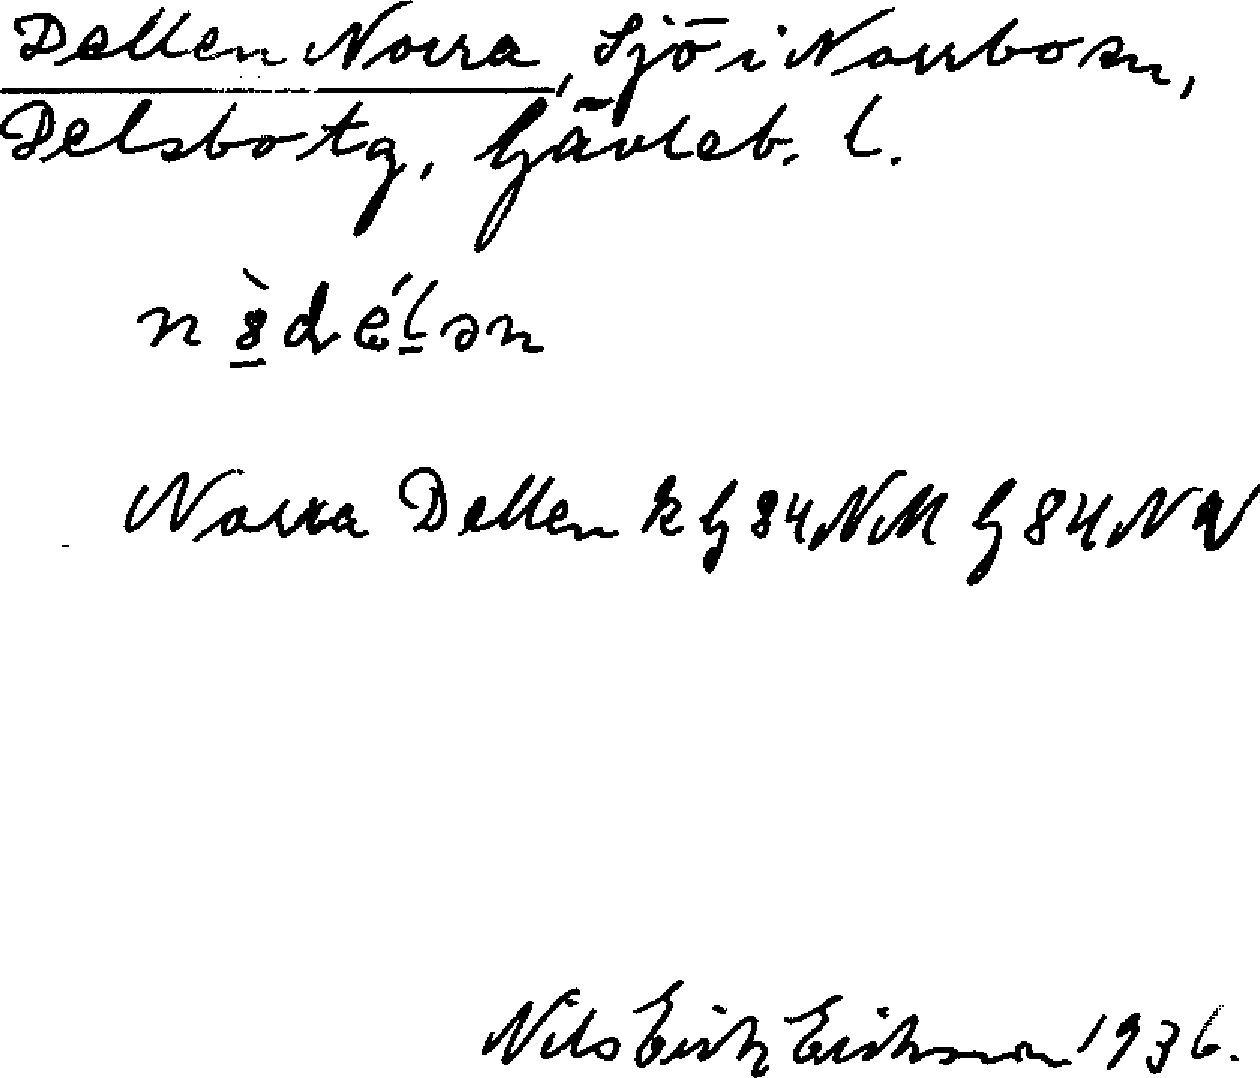 Dellen Norra, Sjö i Norrbo sn,
Delsbo tg, Gävleb. l.
Norra Dellen k G 84 NM G 84 NV
Nils Erik Erikson 1936.